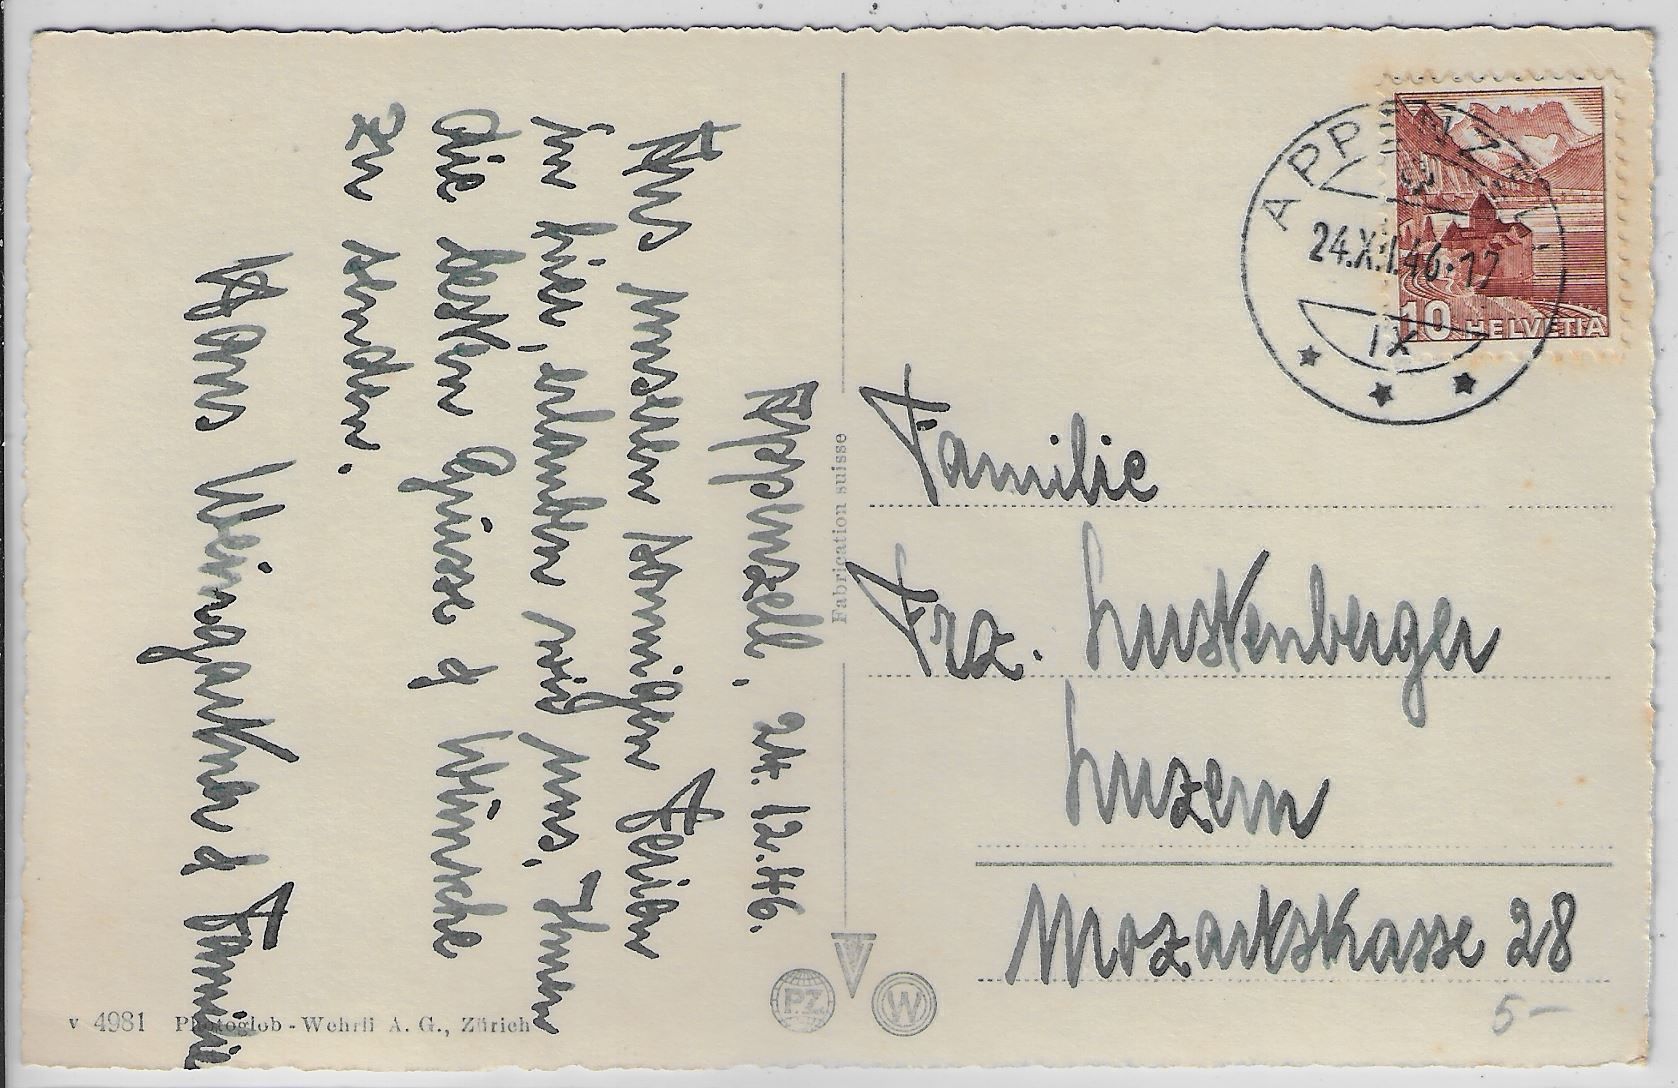 Appenzell, 24.12.46.
Aus unseren sonnigen Ferien
in hier, erlauben wir uns, Ihnen
die besten Grüsse &
Wünsche
zu senden.
Hans Weingartner & Familie
Fabrication suisse
v 4981 Photoglob-Wehrli A. G., Zürich
P.Z.
W
APPENZELL
24.XII.46.-17
IX
10 HELVETIA
Familie
Frz. Lustenberger
Luzern
Mozartstrasse 28
5-